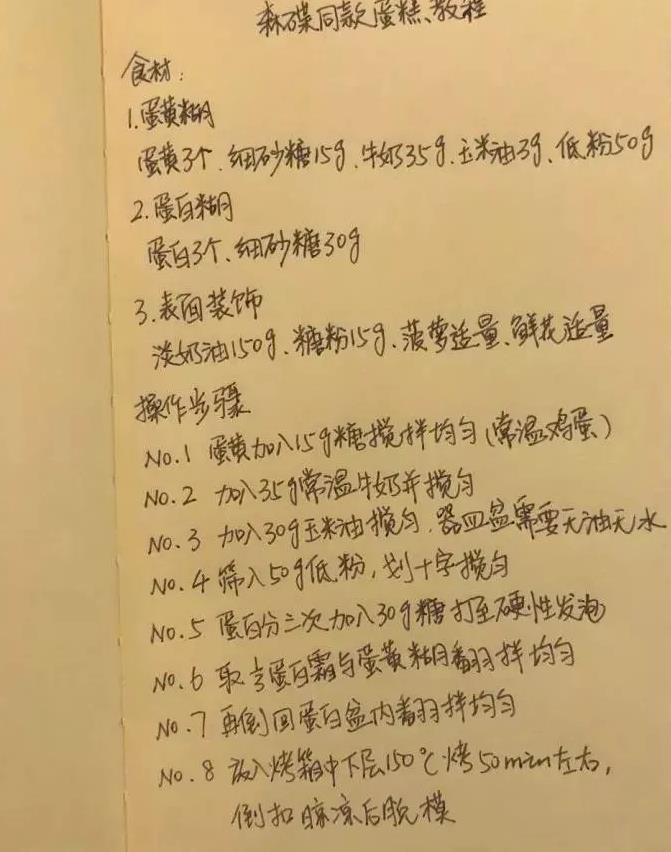 森碟同款蛋糕教程
食材:
1.蛋黄糊
蛋黄3个、细砂糖15g、牛奶35g、玉米油3g、低粉50g
2.蛋白糊
蛋白3个、细砂糖30g
3.表面装饰
淡奶油150g、糖粉15g、菠萝适量、鲜花适量
操作步骤
NO.1 蛋黄加入15g糖搅拌均匀(常温鸡蛋)
NO.2 加入35g常温牛奶并搅匀
NO.3 加入30g玉米油搅匀、器皿盆需要无油无水
NO.4 筛入50g低粉,划十字搅匀
NO.5 蛋白分三次加入30g糖打至硬性发泡
NO.6 取⅓蛋白霜与蛋黄糊翻拌均匀
NO.7 再倒回蛋白盆内翻拌均匀
NO.8 放入烤箱中下层150℃烤50min左右,
倒扣晾凉后脱模